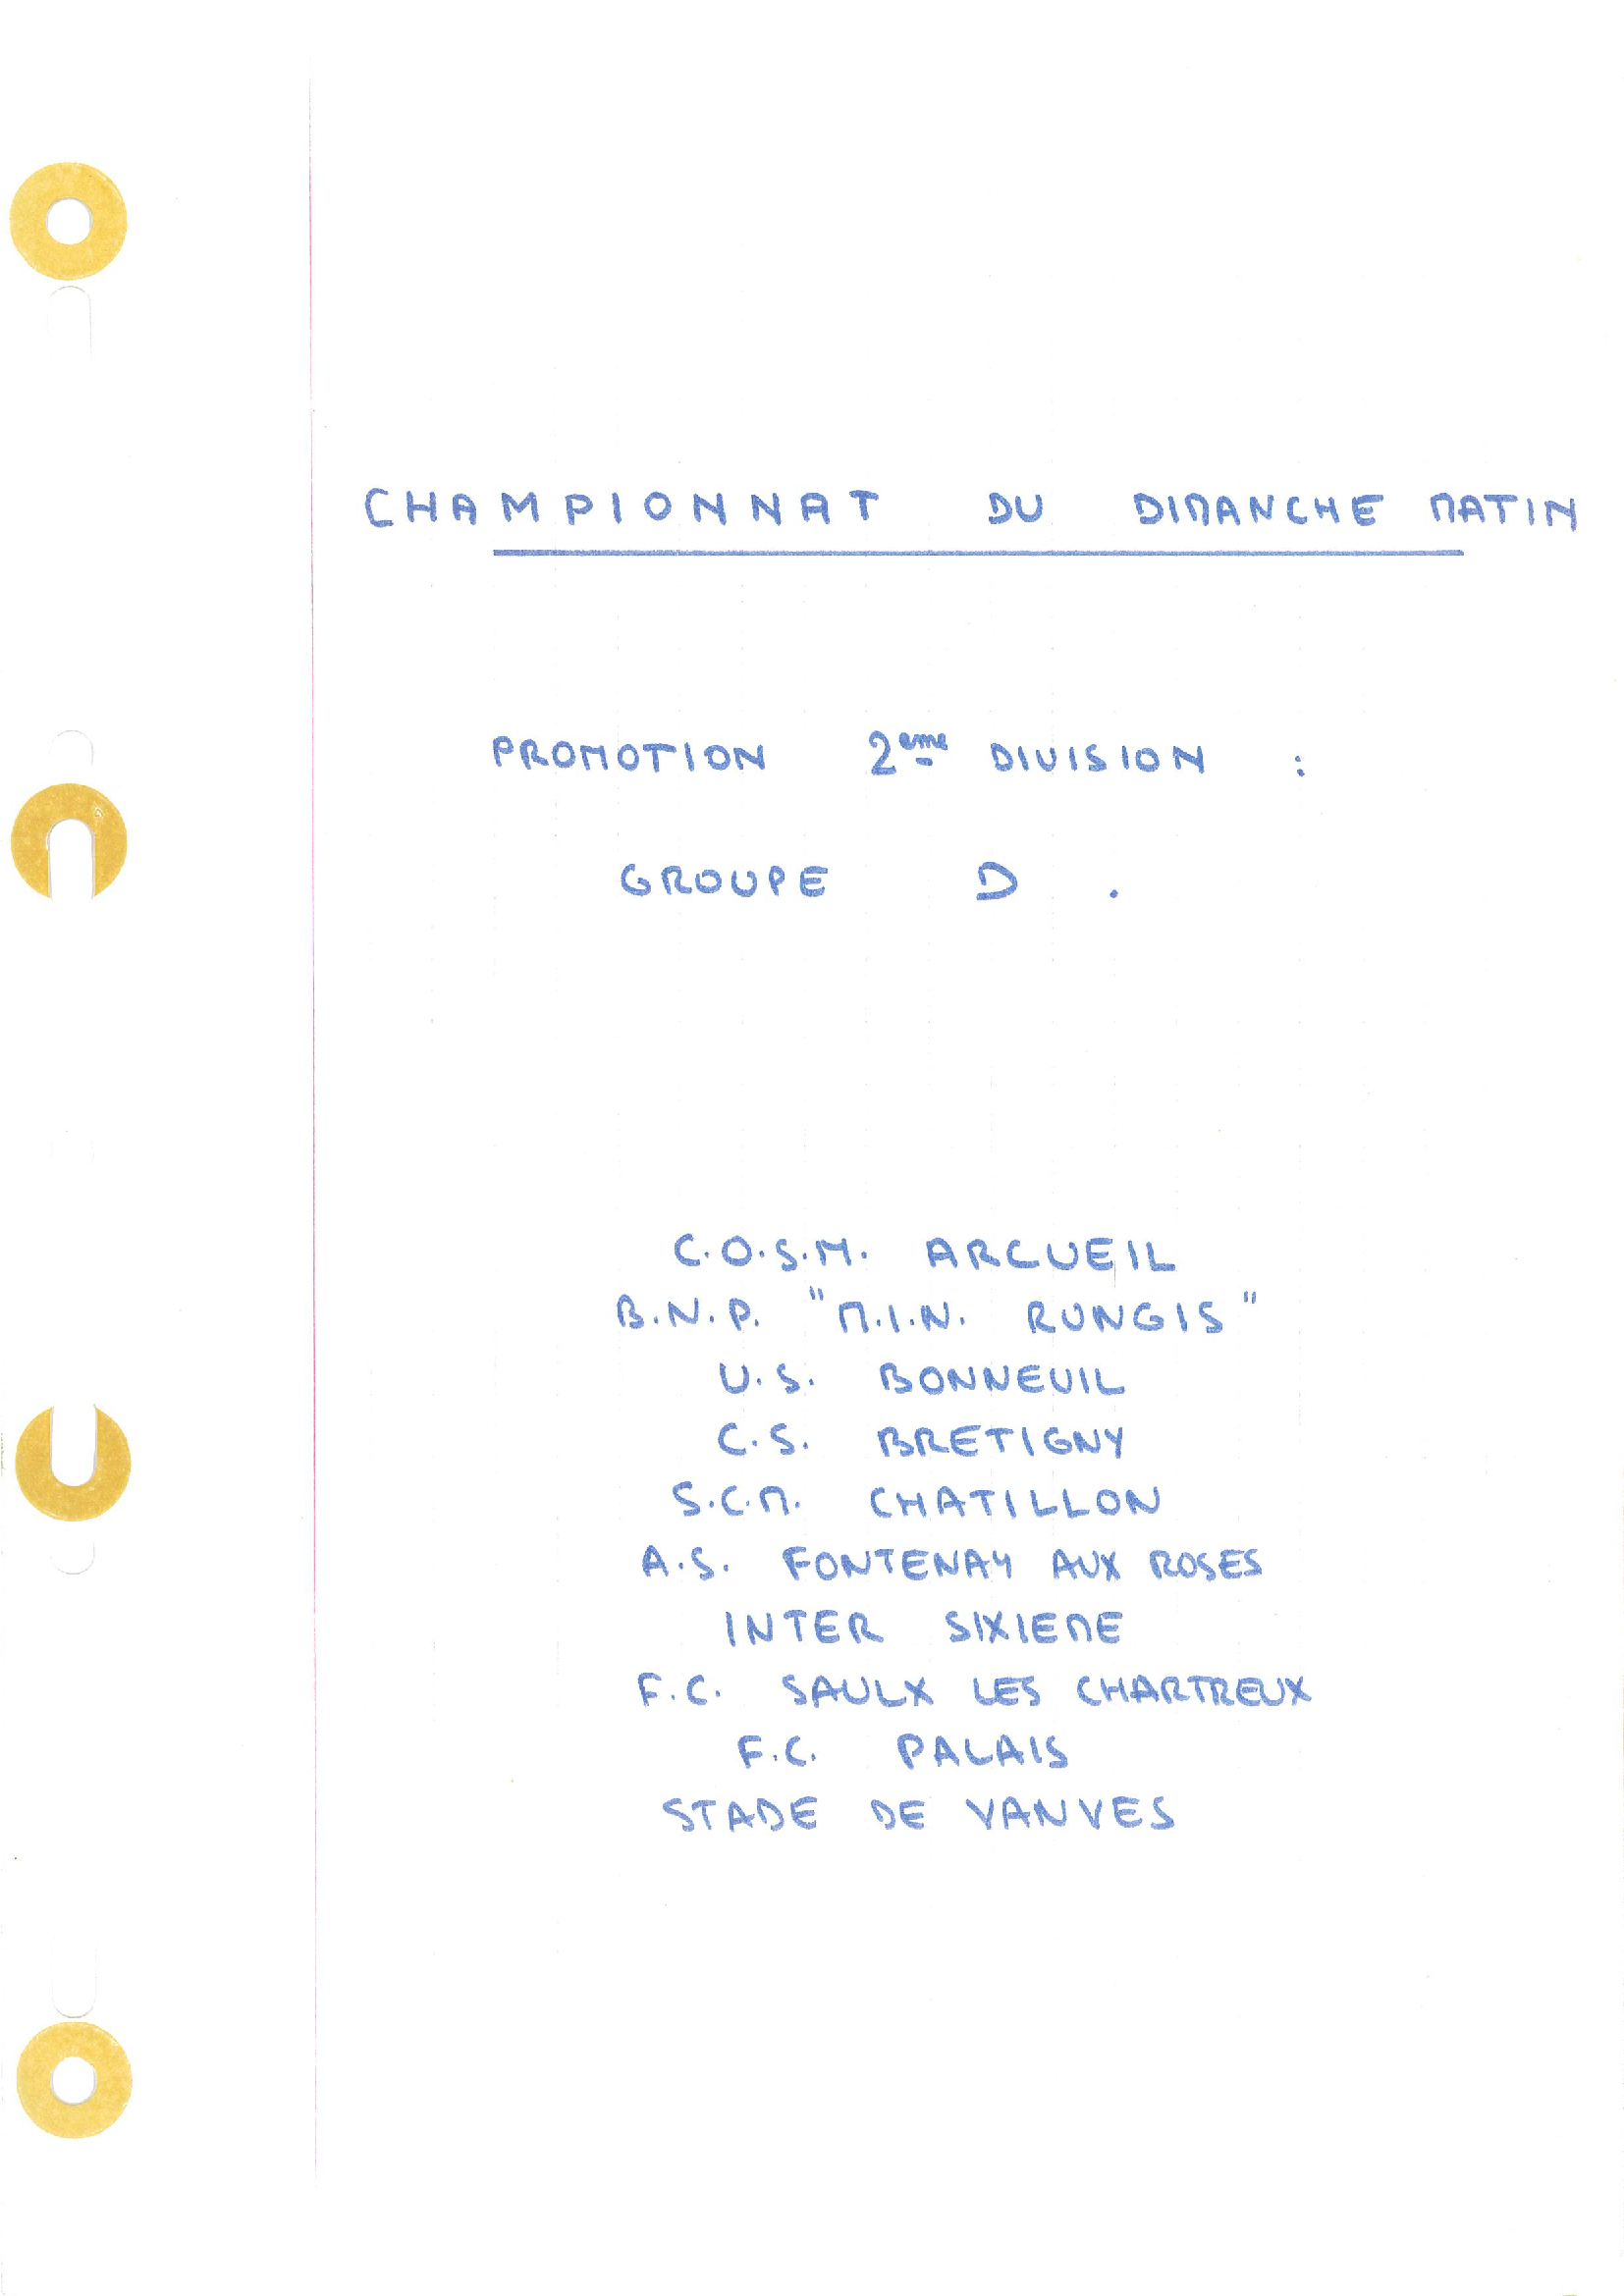 CHAMPIONNAT DU DIMANCHE MATIN
PROMOTION 2eme DIVISION :
GROUPE D .
C.O.S.M. ARCUEIL
B.N.P. "M.I.N. RUNGIS"
U.S. BONNEUIL
C.S. BRETIGNY
S.C.M. CHATILLON
A.S. FONTENAY AUX ROSES
INTER SIXIEME
F.C. SAULX LES CHARTREUX
F.C. PALAIS
STADE DE VANVES